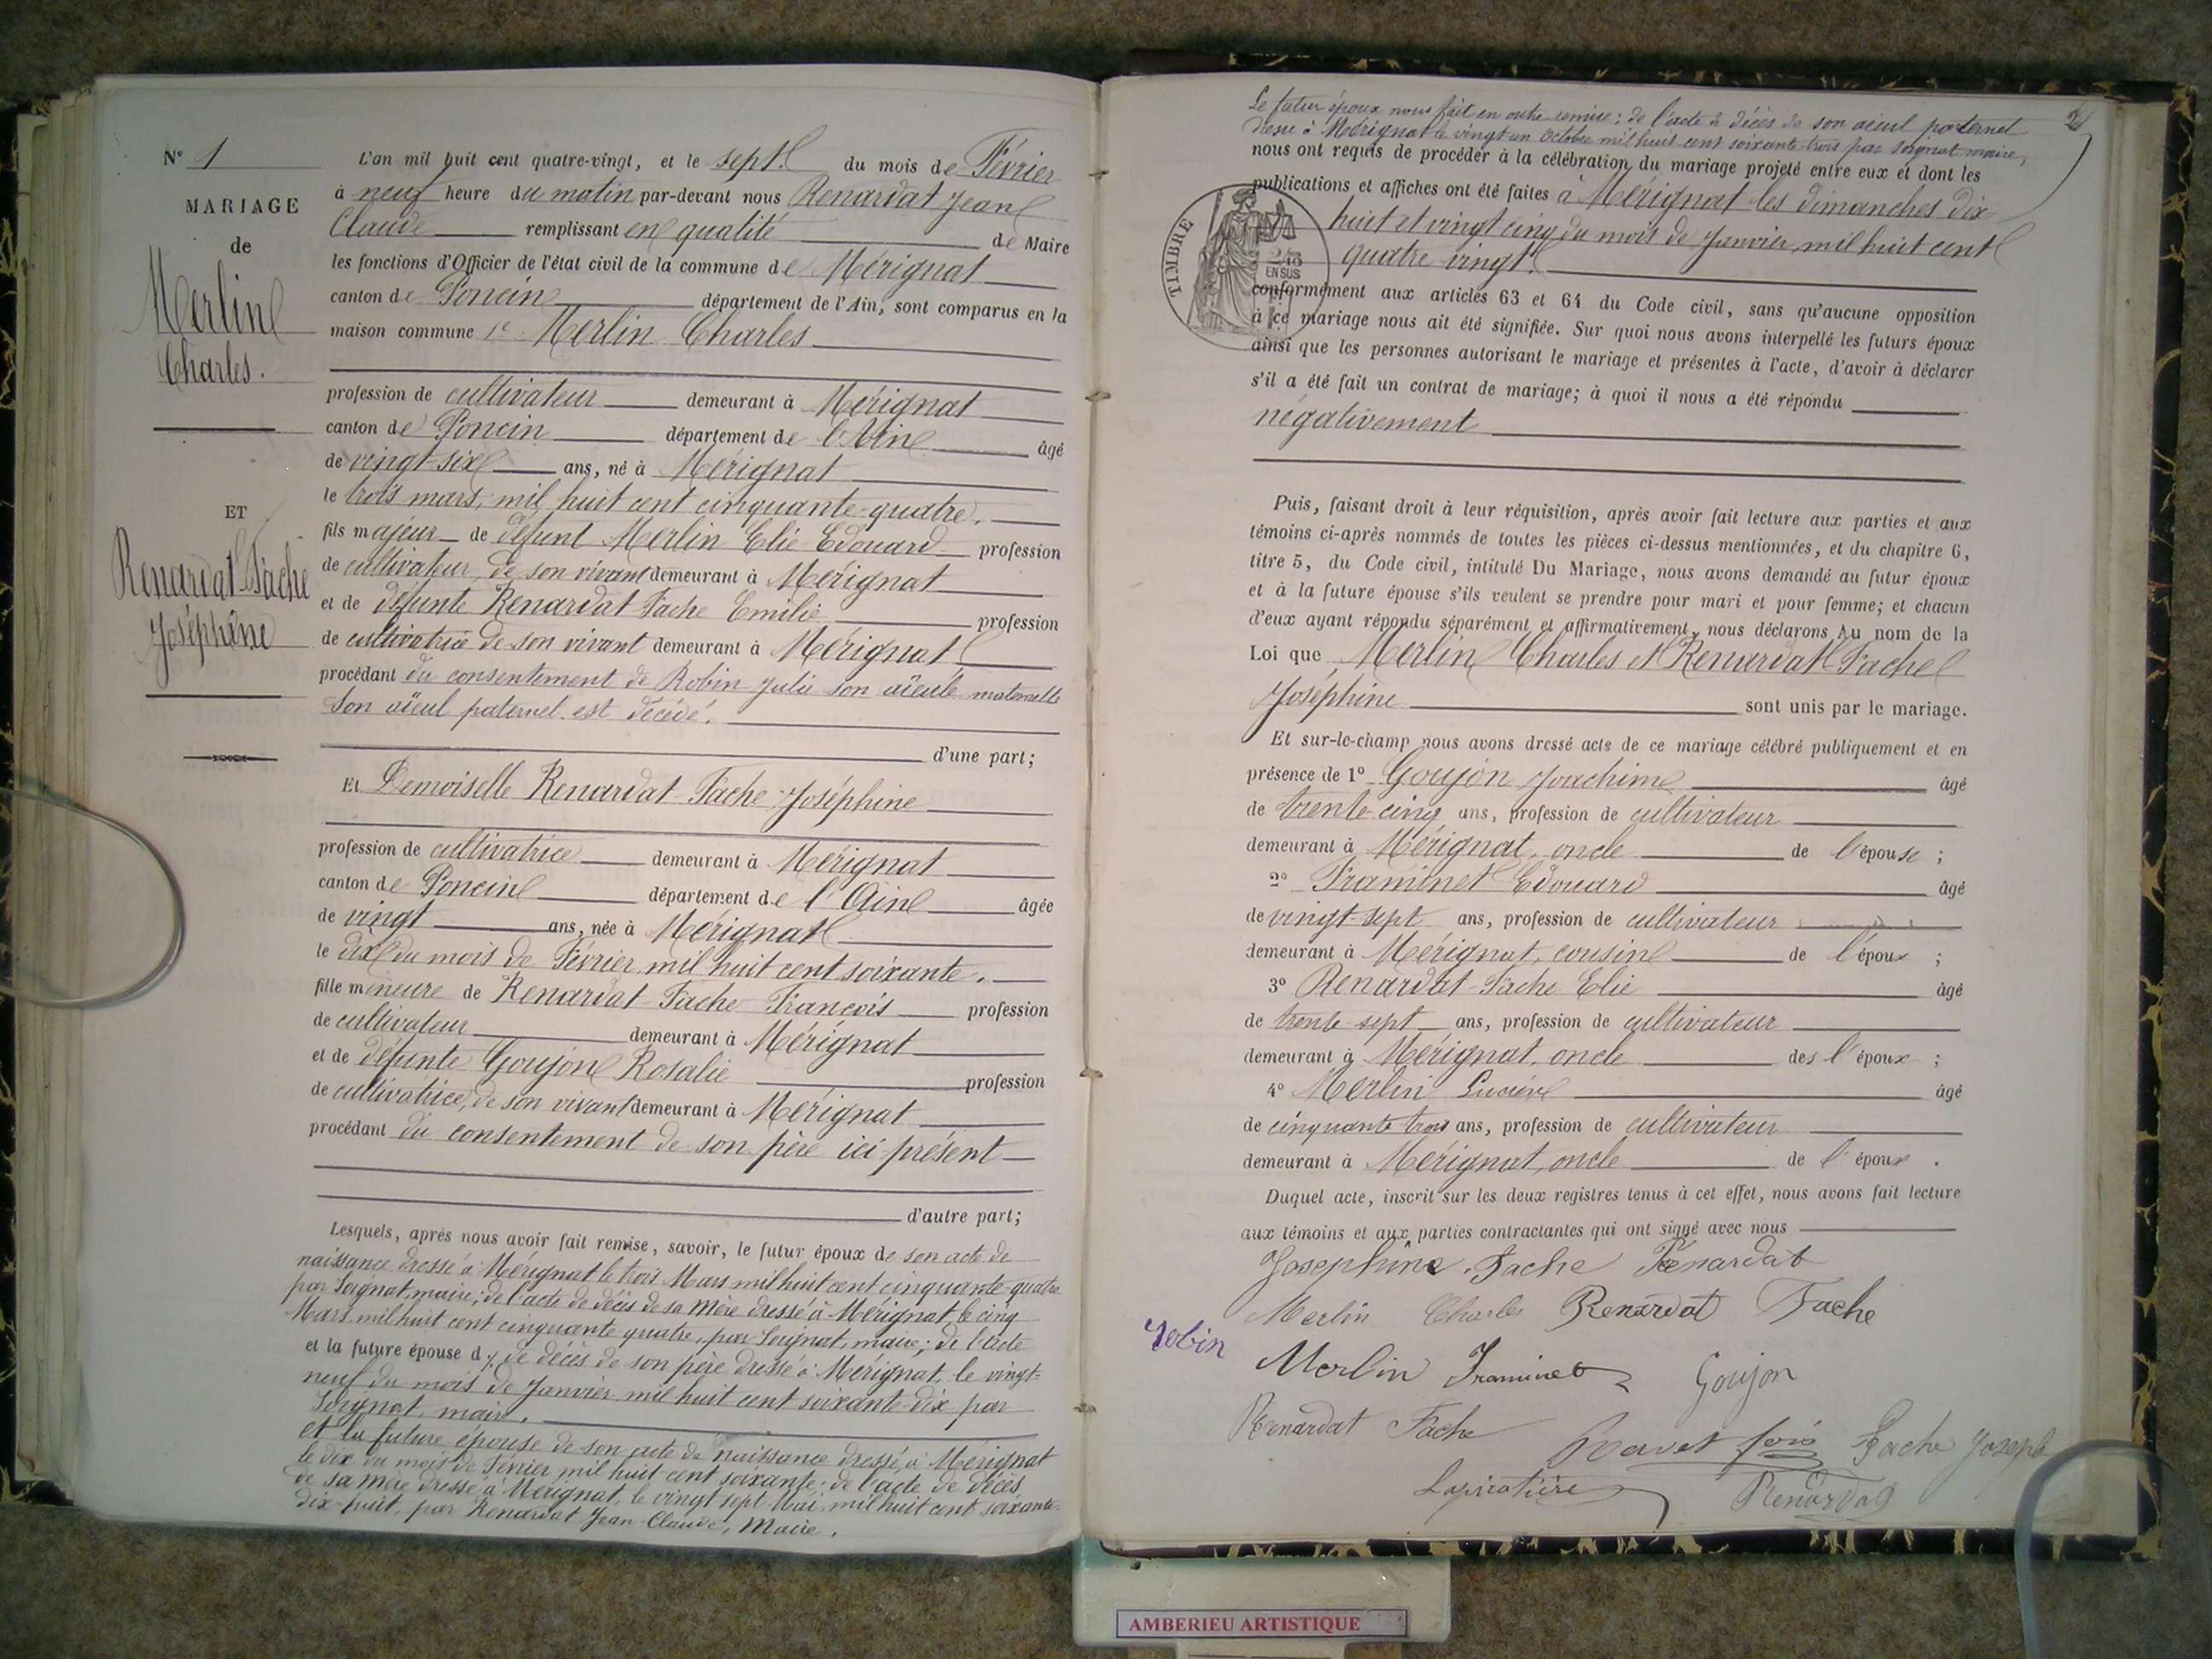 N° 1
MARIAGE
de
Merlin
Charles.
ET
Renardat-Fache
Joséphine
L'an mil huit cent quatre-vingt, et le sept du mois de Février
à neuf heure du matin par-devant nous Renardat Jean
Claude remplissant en qualité de Maire
les fonctions d'Officier de l'état civil de la commune de Mérignat
canton de Poncin département de l'Ain, sont comparus en la
maison commune 1° Merlin Charles
profession de cultivateur demeurant à Mérignat
canton de Poncin département de l'Ain âgé
de vingt-six ans, né à Mérignat
le trois mars, mil huit cent cinquante-quatre.
fils majeur de défunt Merlin Elie Edouard profession
de cultivateur, de son vivant demeurant à Mérignat
et de défunte Renardat Fache Emilie profession
de cultivatrice de son vivant demeurant à Mérignat
procédant du consentement de Robin Julie son aïeule maternelle
Son aïeul paternel est décédé.
d'une part;
Et Demoiselle Renardat-Fache Joséphine
profession de cultivatrice demeurant à Mérignat
canton de Poncin département de l'Ain âgée
de vingt ans, née à Mérignat
le dix du mois de Février mil huit cent soixante.
fille mineure de Renardat-Fache François profession
de cultivateur demeurant à Mérignat
et de défunte Goujon Rosalie profession
de cultivatrice, de son vivant demeurant à Mérignat
procédant du consentement de son père ici présent
d'autre part;
Lesquels, après nous avoir fait remise, savoir, le futur époux de son acte de
naissance dressé à Mérignat le trois Mars mil huit cent cinquante-quatre
par Soignat, maire; de l'acte de décès de sa mère dressé à Mérignat, le cinq
Mars mil huit cent cinquante quatre, par Soignat, maire; de l'acte
et la future épouse d de décès de son père dressé à Mérignat, le vingt-
neuf du mois de Janvier mil huit cent soixante-dix par
Soignat, maire.
et la future épouse de son acte de naissance dressé à Mérignat
le dix du mois de Février mil huit cent soixante; de l'acte de décès
de sa mère dressé à Mérignat, le vingt sept Mai mil huit cent soixante-
dix-huit, par Renardat Jean-Claude, Maire.
2
Le futur époux nous fait en outre remise: de l'acte de décès de son aïeul paternel
dressé à Mérignat le vingt un Octobre mil huit cent soixante-trois par Soignat maire,
nous ont requis de procéder à la célébration du mariage projeté entre eux et dont les
publications et affiches ont été faites à Mérignat les dimanches dix
huit et vingt cinq du mois de Janvier, mil huit cent
quatre vingt
TIMBRE
EN SUS
conformément aux articles 63 et 64 du Code civil, sans qu'aucune opposition
à ce mariage nous ait été signifiée. Sur quoi nous avons interpellé les futurs époux
ainsi que les personnes autorisant le mariage et présentes à l'acte, d'avoir à déclarer
s'il a été fait un contrat de mariage; à quoi il nous a été répondu
négativement
Puis, faisant droit à leur réquisition, après avoir fait lecture aux parties et aux
témoins ci-après nommés de toutes les pièces ci-dessus mentionnées, et du chapitre 6,
titre 5, du Code civil, intitulé Du Mariage, nous avons demandé au futur époux
et à la future épouse s'ils veulent se prendre pour mari et pour femme; et chacun
d'eux ayant répondu séparément et affirmativement, nous déclarons Au nom de la
Loi que Merlin Charles et Renardat Fache
Joséphine sont unis par le mariage.
Et sur-le-champ nous avons dressé acte de ce mariage célébré publiquement et en
présence de 1° Goujon Joachim âgé
de trente-cinq ans, profession de cultivateur
demeurant à Mérignat, oncle de l'épouse;
2° Framinet Edouard âgé
de vingt-sept ans, profession de cultivateur
demeurant à Mérignat, cousin de l'époux;
3° Renardat-Fache Elie âgé
de trente-sept ans, profession de cultivateur
demeurant à Mérignat, oncle des l'époux;
4° Merlin Lucien âgé
de cinquante trois ans, profession de cultivateur
demeurant à Mérignat, oncle de l'époux.
Duquel acte, inscrit sur les deux registres tenus à cet effet, nous avons fait lecture
aux témoins et aux parties contractantes qui ont signé avec nous
Josephine Fache Renardat
Merlin Charles Renardat Fache
Robin
Merlin Framinet Goujon
Renardat Fache Fache Joseph
Renardat
AMBERIEU ARTISTIQUE